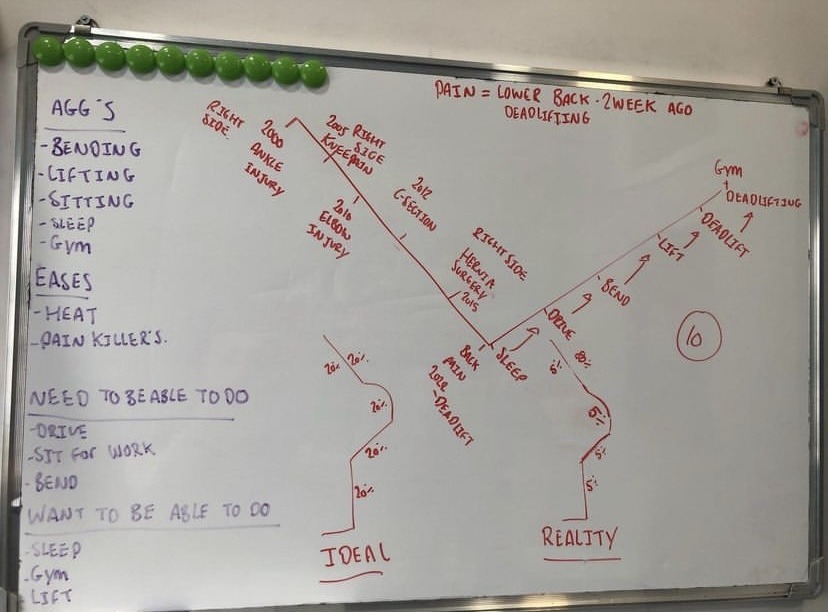 PAIN = LOWER BACK · 2 WEEK AGO
DEADLIFTING
AGG'S
- BENDING
- LIFTING
- SITTING
- SLEEP
- Gym
EASES
- HEAT
- PAIN KILLER'S.
NEED TO BE ABLE TO DO
- DRIVE
- SIT FOR WORK
- BEND
WANT TO BE ABLE TO DO
- SLEEP
- Gym
- LIFT
RIGHT
SIDE.
2000
ANKLE
INJURY
2005 RIGHT
SIDE
KNEE PAIN
2010
ELBOW
INJURY
2012
C-SECTION
RIGHT SIDE
HERNIA
SURGERY
2015
BACK
PAIN
2022
- DEADLIFT
SLEEP
DRIVE
BEND
LIFT
DEADLIFT
DEADLIFTING
Gym
10
20%
20%
20%
20%
20%
IDEAL
80%
5%
5%
5%
5%
REALITY